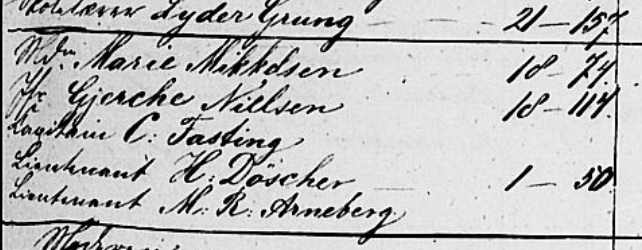 Skolelærer Lyder Grung - - - 21 - 157
Md: Marie Mikkelsen 18 - 74
Jfr Gjerche Nielsen 18 - 114
Capitain C: Fasting
Lieutenant H: Döscher 1 - 50
Lieutenant M: R: Arneberg